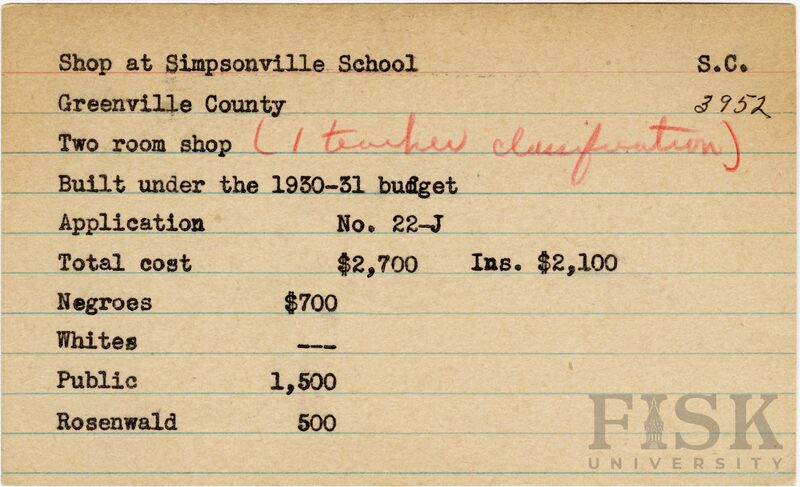 Shop at Simpsonville School S.C.
Greenville County 3952
Two room shop (1 teacher classification)
Built under the 1930-31 budget
Application No. 22-J
Total cost $2,700 Ins. $2,100
Negroes $700
Whites ---
Public 1,500
Rosenwald 500
FISK
UNIVERSITY